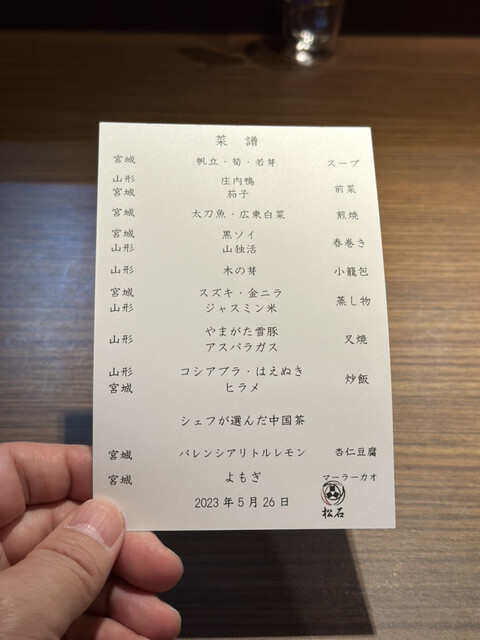 菜 譜
宮城 帆立・筍・若芽 スープ
山形 庄内鴨
宮城 茄子 前菜
宮城 太刀魚・広東白菜 煎焼
宮城 黒ソイ
山形 山独活 春巻き
山形 木の芽 小籠包
宮城 スズキ・金ニラ
山形 ジャスミン米 蒸し物
山形 やまがた雪豚
アスパラガス 叉焼
山形 コシアブラ・はえぬき
宮城 ヒラメ 炒飯
シェフが選んだ中国茶
宮城 バレンシアリトルレモン 杏仁豆腐
宮城 よもぎ マーラーカオ
2023年5月26日
松石